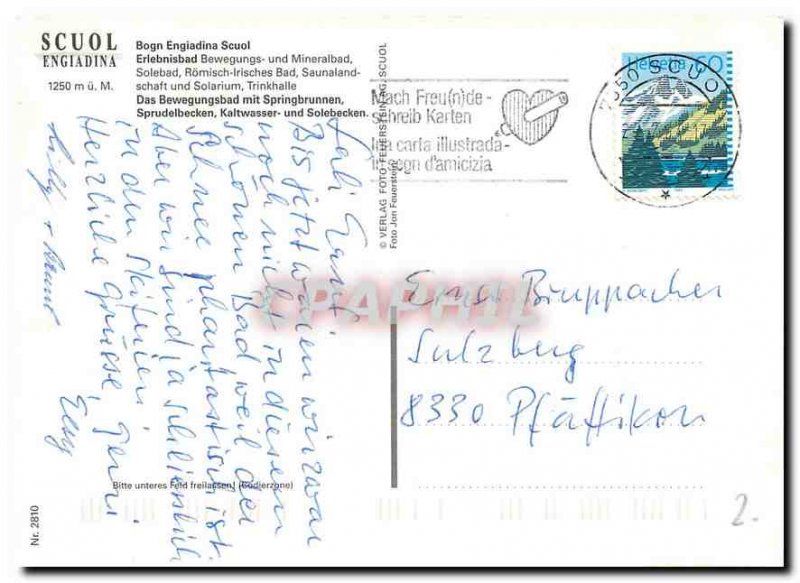 SCUOL
ENGIADINA
1250 m ü. M.
Bogn Engiadina Scuol
Erlebnisbad Bewegungs- und Mineralbad,
Solebad, Römisch-Irisches Bad, Saunaland-
schaft und Solarium, Trinkhalle
Das Bewegungsbad mit Springbrunnen,
Sprudelbecken, Kaltwasser- und Solebecken.
© VERLAG FOTO FEUERSTEIN AG, SCUOL
Foto Jon Feuerstein
Mach Freu(n)de -
schreib Karten
carta illustrada -
insegn d'amicizia
Helvetia 60
7550 SCUOL
Bis jetzt waren wir zwar
noch nicht in diesem
schönen Bad weil der
Schnee phantastisch ist
Aber wir sind ja schliesslich
in den Skiferien!
Herzliche Grüsse,
Ernst Bruppacher
Sulzberg
8330 Pfäffikon
CPAPHIL
Bitte unteres Feld freilassen! (Codierzone)
Nr. 2810
2.-